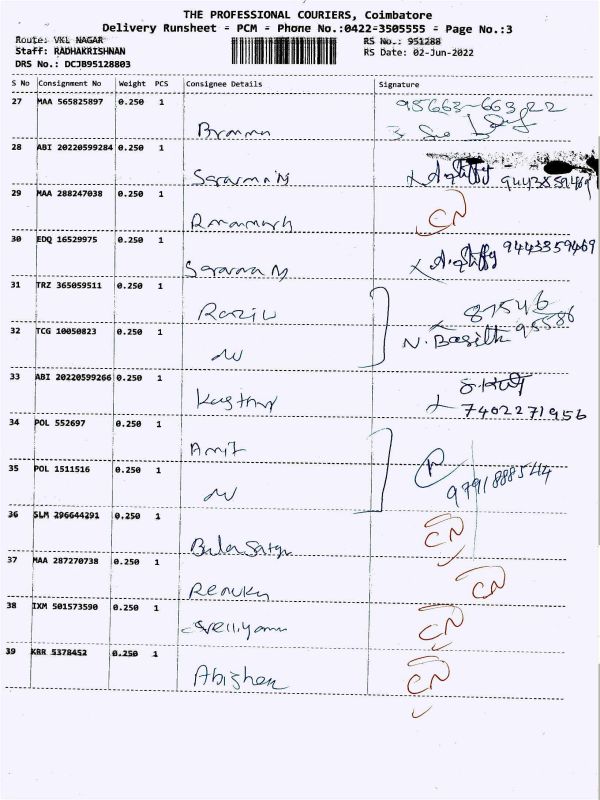 THE PROFESSIONAL COURIERS, Coimbatore
Delivery Runsheet - PCM - Phone No.:0422-3505555 - Page No.:3
Route: VKL NAGAR RS No.: 951288
Staff: RADHAKRISHNAN RS Date: 02-Jun-2022
DRS No.: DCJB95128803
S No Consignment No Weight PCS Consignee Details Signature
27 MAA 565825897 0.250 1 95663-66322
28 ABI 20220599284 0.250 1 Saravana M 9443859469
29 MAA 288247038 0.250 1 CN
30 EDQ 16529975 0.250 1 Saravana M 9443359469
31 TRZ 365059511 0.250 1 87546
32 TCG 10050823 0.250 1 N. Basith 95586
33 ABI 20220599266 0.250 1 7402271956
34 POL 552697 0.250 1 Amit
35 POL 1511516 0.250 1
36 SLM 296644291 0.250 1 CN
37 MAA 287270738 0.250 1 Renuka CN
38 IXM 501573590 0.250 1 CN
39 KRR 5378452 0.250 1 CN